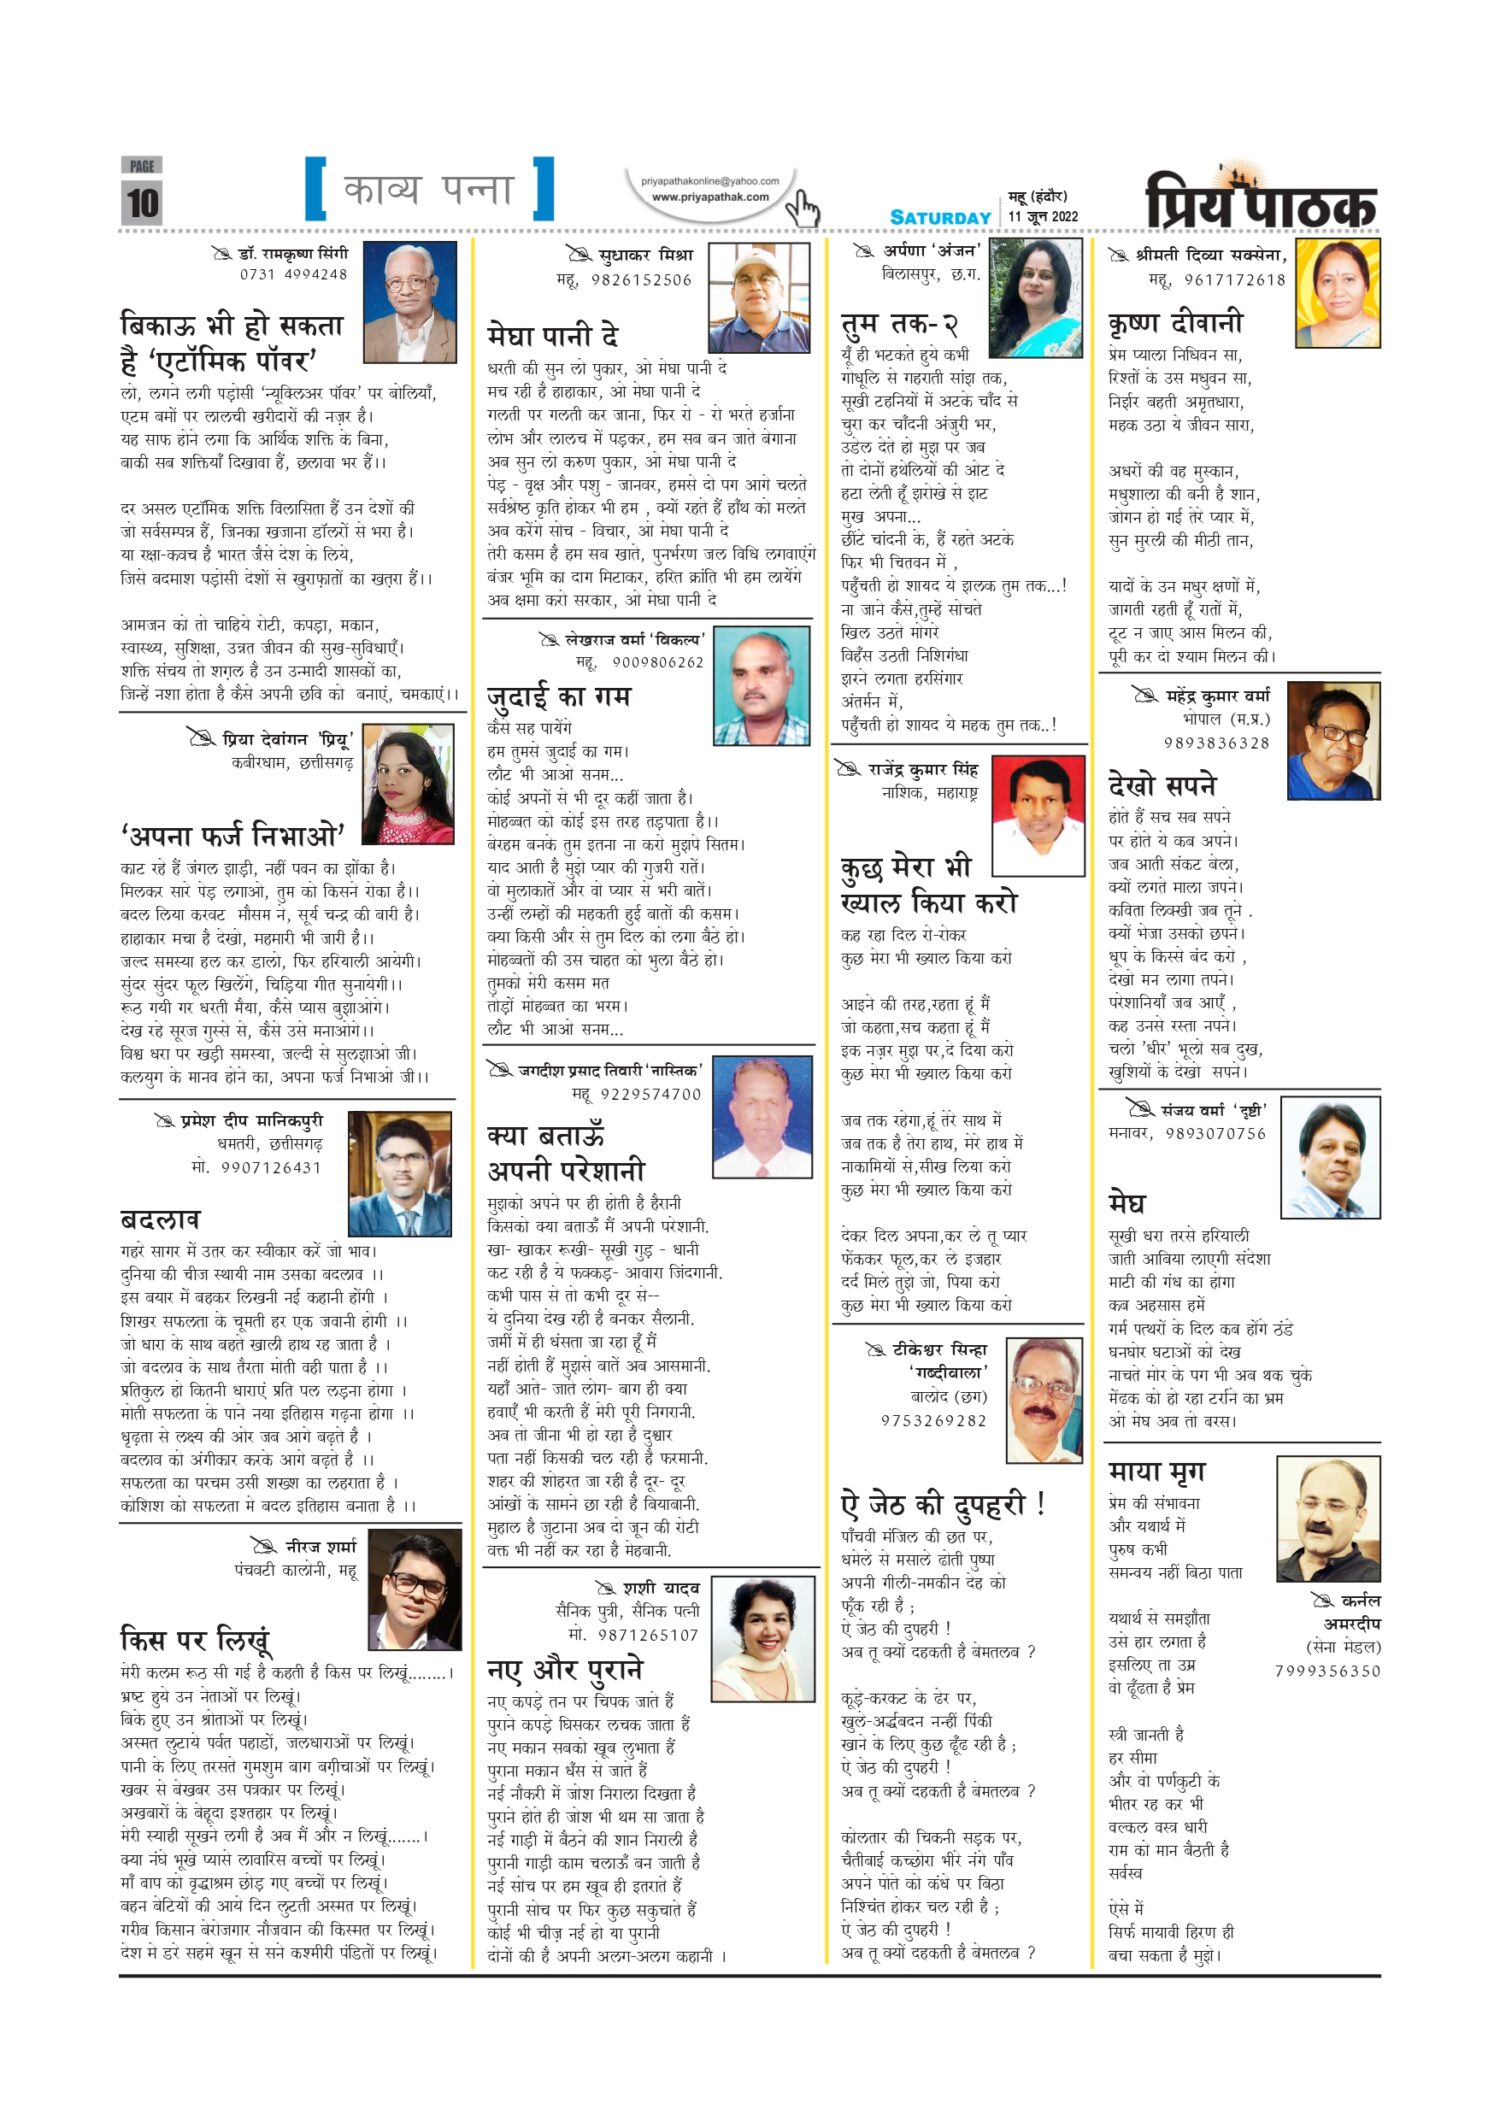 PAGE
10
काव्य पन्ना
priyapathakonline@yahoo.com
www.priyapathak.com
SATURDAY
महू (इंदौर)
11 जून 2022
प्रिय पाठक
डॉ. रामकृष्ण सिंगी
0731 4994248
बिकाऊ भी हो सकता
है ‘एटॉमिक पॉवर’
लो, लगने लगी पड़ोसी ‘न्यूक्लिअर पॉवर’ पर बोलियाँ,
एटम बमों पर लालची खरीदारों की नज़र है।
यह साफ होने लगा कि आर्थिक शक्ति के बिना,
बाकी सब शक्तियाँ दिखावा हैं, छलावा भर हैं।।
दर असल एटॉमिक शक्ति विलासिता हैं उन देशों की
जो सर्वसम्पन्न हैं, जिनका खजाना डॉलरों से भरा है।
या रक्षा-कवच है भारत जैसे देश के लिये,
जिसे बदमाश पड़ोसी देशों से खुराफ़ातों का खत़रा हैं।।
आमजन को तो चाहिये रोटी, कपड़ा, मकान,
स्वास्थ्य, सुशिक्षा, उन्नत जीवन की सुख-सुविधाएँ।
शक्ति संचय तो शग़ल है उन उन्मादी शासकों का,
जिन्हें नशा होता है कैसे अपनी छवि को बनाएं, चमकाएं।।
प्रिया देवांगन 'प्रियू'
कबीरधाम, छत्तीसगढ़
‘अपना फर्ज निभाओ’
काट रहे हैं जंगल झाड़ी, नहीं पवन का झोंका है।
मिलकर सारे पेड़ लगाओ, तुम को किसने रोका है।।
बदल लिया करवट मौसम ने, सूर्य चन्द्र की बारी है।
हाहाकार मचा है देखो, महमारी भी जारी है।।
जल्द समस्या हल कर डालो, फिर हरियाली आयेगी।
सुंदर सुंदर फूल खिलेंगे, चिड़िया गीत सुनायेगी।।
रूठ गयी गर धरती मैया, कैसे प्यास बुझाओगे।
देख रहे सूरज गुस्से से, कैसे उसे मनाओगे।।
विश्व धरा पर खड़ी समस्या, जल्दी से सुलझाओ जी।
कलयुग के मानव होने का, अपना फर्ज निभाओ जी।।
प्रमेश दीप मानिकपुरी
धमतरी, छत्तीसगढ़
मो. 9907126431
बदलाव
गहरे सागर में उतर कर स्वीकार करें जो भाव।
दुनिया की चीज स्थायी नाम उसका बदलाव ।।
इस बयार में बहकर लिखनी नई कहानी होंगी ।
शिखर सफलता के चूमती हर एक जवानी होगी ।।
जो धारा के साथ बहते खाली हाथ रह जाता है ।
जो बदलाव के साथ तैरता मोती वही पाता है ।।
प्रतिकुल हो कितनी धाराएं प्रति पल लड़ना होगा ।
मोती सफलता के पाने नया इतिहास गढ़ना होगा ।।
धृढ़ता से लक्ष्य की ओर जब आगे बढ़ते है ।
बदलाव को अंगीकार करके आगे बढ़ते है ।।
सफलता का परचम उसी शख्श का लहराता है ।
कोशिश को सफलता मे बदल इतिहास बनाता है ।।
नीरज शर्मा
पंचवटी कालोनी, महू
किस पर लिखूं
मेरी कलम रूठ सी गई है कहती है किस पर लिखूं........।
भ्रष्ट हुये उन नेताओं पर लिखूं।
बिके हुए उन श्रोताओं पर लिखूं।
अस्मत लुटाये पर्वत पहाडों, जलधाराओं पर लिखूं।
पानी के लिए तरसते गुमशुम बाग बग़ीचाओं पर लिखूं।
खबर से बेखबर उस पत्रकार पर लिखूं।
अखबारों के बेहूदा इश्तहार पर लिखूं।
मेरी स्याही सूखने लगी है अब मैं और न लिखूं.......।
क्या नंघे भूखे प्यासे लावारिस बच्चों पर लिखूं।
माँ बाप को वृद्धाश्रम छोड़ गए बच्चों पर लिखूं।
बहन बेटियों की आये दिन लुटती अस्मत पर लिखूं।
गरीब किसान बेरोजगार नौजवान की किस्मत पर लिखूं।
देश मे डरे सहमे खून से सने कश्मीरी पंडितों पर लिखूं।
सुधाकर मिश्रा
महू, 9826152506
मेघा पानी दे
धरती की सुन लो पुकार, ओ मेघा पानी दे
मच रही है हाहाकार, ओ मेघा पानी दे
गलती पर गलती कर जाना, फिर रो - रो भरते हर्जाना
लोभ और लालच में पड़कर, हम सब बन जाते बेगाना
अब सुन लो करुण पुकार, ओ मेघा पानी दे
पेड़ - वृक्ष और पशु - जानवर, हमसे दो पग आगे चलते
सर्वश्रेष्ठ कृति होकर भी हम , क्यों रहते हैं हाँथ को मलते
अब करेंगे सोच - विचार, ओ मेघा पानी दे
तेरी कसम है हम सब खाते, पुनर्भरण जल विधि लगवाएंगे
बंजर भूमि का दाग मिटाकर, हरित क्रांति भी हम लायेंगे
अब क्षमा करो सरकार, ओ मेघा पानी दे
लेखराज वर्मा ‘विकल्प’
महू, 9009806262
जुदाई का गम
कैसे सह पायेंगे
हम तुमसे जुदाई का गम।
लौट भी आओ सनम...
कोई अपनों से भी दूर कहीं जाता है।
मोहब्बत को कोई इस तरह तड़पाता है।।
बेरहम बनके तुम इतना ना करो मुझपे सितम।
याद आती है मुझे प्यार की गुजरी रातें।
वो मुलाकातें और वो प्यार से भरी बातें।
उन्हीं लम्हों की महकती हुई बातों की कसम।
क्या किसी और से तुम दिल को लगा बैठे हो।
मोहब्बतों की उस चाहत को भुला बैठे हो।
तुमको मेरी कसम मत
तोड़ों मोहब्बत का भरम।
लौट भी आओ सनम...
जगदीश प्रसाद तिवारी ‘नास्तिक’
महू 9229574700
क्या बताऊँ
अपनी परेशानी
मुझको अपने पर ही होती है हैरानी
किसको क्या बताऊँ मैं अपनी परेशानी.
खा- खाकर रूखी- सूखी गुड़ - धानी
कट रही है ये फक्कड़- आवारा जिंदगानी.
कभी पास से तो कभी दूर से--
ये दुनिया देख रही है बनकर सैलानी.
जमीं में ही धंसता जा रहा हूँ मैं
नहीं होती हैं मुझसे बातें अब आसमानी.
यहाँ आते- जाते लोग- बाग ही क्या
हवाएँ भी करती हैं मेरी पूरी निगरानी.
अब तो जीना भी हो रहा है दुश्वार
पता नहीं किसकी चल रही है फरमानी.
शहर की शोहरत जा रही है दूर- दूर
आंखों के सामने छा रही है बियाबानी.
मुहाल है जुटाना अब दो जून की रोटी
वक्त भी नहीं कर रहा है मेहबानी.
शशी यादव
सैनिक पुत्री, सैनिक पत्नी
मो. 9871265107
नए और पुराने
नए कपड़े तन पर चिपक जाते हैं
पुराने कपड़े घिसकर लचक जाता हैं
नए मकान सबको खूब लुभाता हैं
पुराना मकान धँस से जाते हैं
नई नौकरी में जोश निराला दिखता है
पुराने होते ही जोश भी थम सा जाता है
नई गाड़ी में बैठने की शान निराली है
पुरानी गाड़ी काम चलाऊँ बन जाती है
नई सोच पर हम खूब ही इतराते हैं
पुरानी सोच पर फिर कुछ सकुचाते हैं
कोई भी चीज़ नई हो या पुरानी
दोनों की है अपनी अलग-अलग कहानी ।
अर्पणा ‘अंजन’
बिलासपुर, छ.ग.
तुम तक-२
यूँ ही भटकते हुये कभी
गोधूलि से गहराती सांझ तक,
सूखी टहनियों में अटके चाँद से
चुरा कर चाँदनी अंजुरी भर,
उडेल देते हो मुझ पर जब
तो दोनों हथेलियों की ओट दे
हटा लेती हूँ झरोखे से झाट
मुख अपना...
छींटे चांदनी के, हैं रहते अटके
फिर भी चितवन में ,
पहुँचती हो शायद ये झलक तुम तक...!
ना जाने कैसे,तुम्हें सोचते
खिल उठते मोगरे
विहँस उठती निशिगंधा
झरने लगता हरसिंगार
अंतर्मन में,
पहुँचती हो शायद ये महक तुम तक..!
राजेंद्र कुमार सिंह
नाशिक, महाराष्ट्र
कुछ मेरा भी
ख्याल किया करो
कह रहा दिल रो-रोकर
कुछ मेरा भी ख्याल किया करो
आइने की तरह,रहता हूं मैं
जो कहता,सच कहता हूं मैं
इक नज़र मुझ पर,दे दिया करो
कुछ मेरा भी ख्याल किया करो
जब तक रहेगा,हूं तेरे साथ में
जब तक है तेरा हाथ, मेरे हाथ में
नाकामियों से,सीख लिया करो
कुछ मेरा भी ख्याल किया करो
देकर दिल अपना,कर ले तू प्यार
फेंककर फूल,कर ले इजहार
दर्द मिले तुझे जो, पिया करो
कुछ मेरा भी ख्याल किया करो
टीकेश्वर सिन्हा
‘गब्दीवाला’
बालोद (छग)
9753269282
ऐ जेठ की दुपहरी !
पाँचवी मंजिल की छत पर,
धमेले से मसाले ढोती पुष्पा
अपनी गीली-नमकीन देह को
फूँक रही है ;
ऐ जेठ की दुपहरी !
अब तू क्यों दहकती है बेमतलब ?
कूड़े-करकट के ढेर पर,
खुले-अर्द्धबदन नन्हीं पिंकी
खाने के लिए कुछ ढूँढ रही है ;
ऐ जेठ की दुपहरी !
अब तू क्यों दहकती है बेमतलब ?
कोलतार की चिकनी सड़क पर,
चैतीबाई कच्छोरा भीरे नंगे पाँव
अपने पोते को कंधे पर बिठा
निश्चिंत होकर चल रही है ;
ऐ जेठ की दुपहरी !
अब तू क्यों दहकती है बेमतलब ?
श्रीमती दिव्या सक्सेना,
महू, 9617172618
कृष्ण दीवानी
प्रेम प्याला निधिवन सा,
रिश्तों के उस मधुवन सा,
निर्झर बहती अमृतधारा,
महक उठा ये जीवन सारा,
अधरों की वह मुस्कान,
मधुशाला की बनी है शान,
जोगन हो गई तेरे प्यार में,
सुन मुरली की मीठी तान,
यादों के उन मधुर क्षणों में,
जागती रहती हूँ रातों में,
टूट न जाए आस मिलन की,
पूरी कर दो श्याम मिलन की।
महेंद्र कुमार वर्मा
भोपाल (म.प्र.)
9893836328
देखो सपने
होते हैं सच सब सपने
पर होते ये कब अपने।
जब आती संकट बेला,
क्यों लगते माला जपने।
कविता लिक्खी जब तूने .
क्यों भेजा उसको छपने।
धूप के किस्से बंद करो ,
देखो मन लागा तपने।
परेशानियाँ जब आएँ ,
कह उनसे रस्ता नपने।
चलो 'धीर' भूलो सब दुख,
खुशियों के देखो सपने।
संजय वर्मा ‘दृष्टी’
मनावर, 9893070756
मेघ
सूखी धरा तरसे हरियाली
जाती आबिया लाएगी संदेशा
माटी की गंध का होगा
कब अहसास हमें
गर्म पत्थरों के दिल कब होंगे ठंडे
घनघोर घटाओं को देख
नाचते मोर के पग भी अब थक चुके
मेंढक को हो रहा टर्राने का भ्रम
ओ मेघ अब तो बरस।
माया मृग
प्रेम की संभावना
और यथार्थ में
पुरुष कभी
समन्वय नहीं बिठा पाता
यथार्थ से समझौता
उसे हार लगता है
इसलिए ता उम्र
वो ढूँढता है प्रेम
स्त्री जानती है
हर सीमा
और वो पर्णकुटी के
भीतर रह कर भी
वल्कल वस्त्र धारी
राम को मान बैठती है
सर्वस्व
ऐसे में
सिर्फ मायावी हिरण ही
बचा सकता है मुझे।
कर्नल
अमरदीप
(सेना मेडल)
7999356350